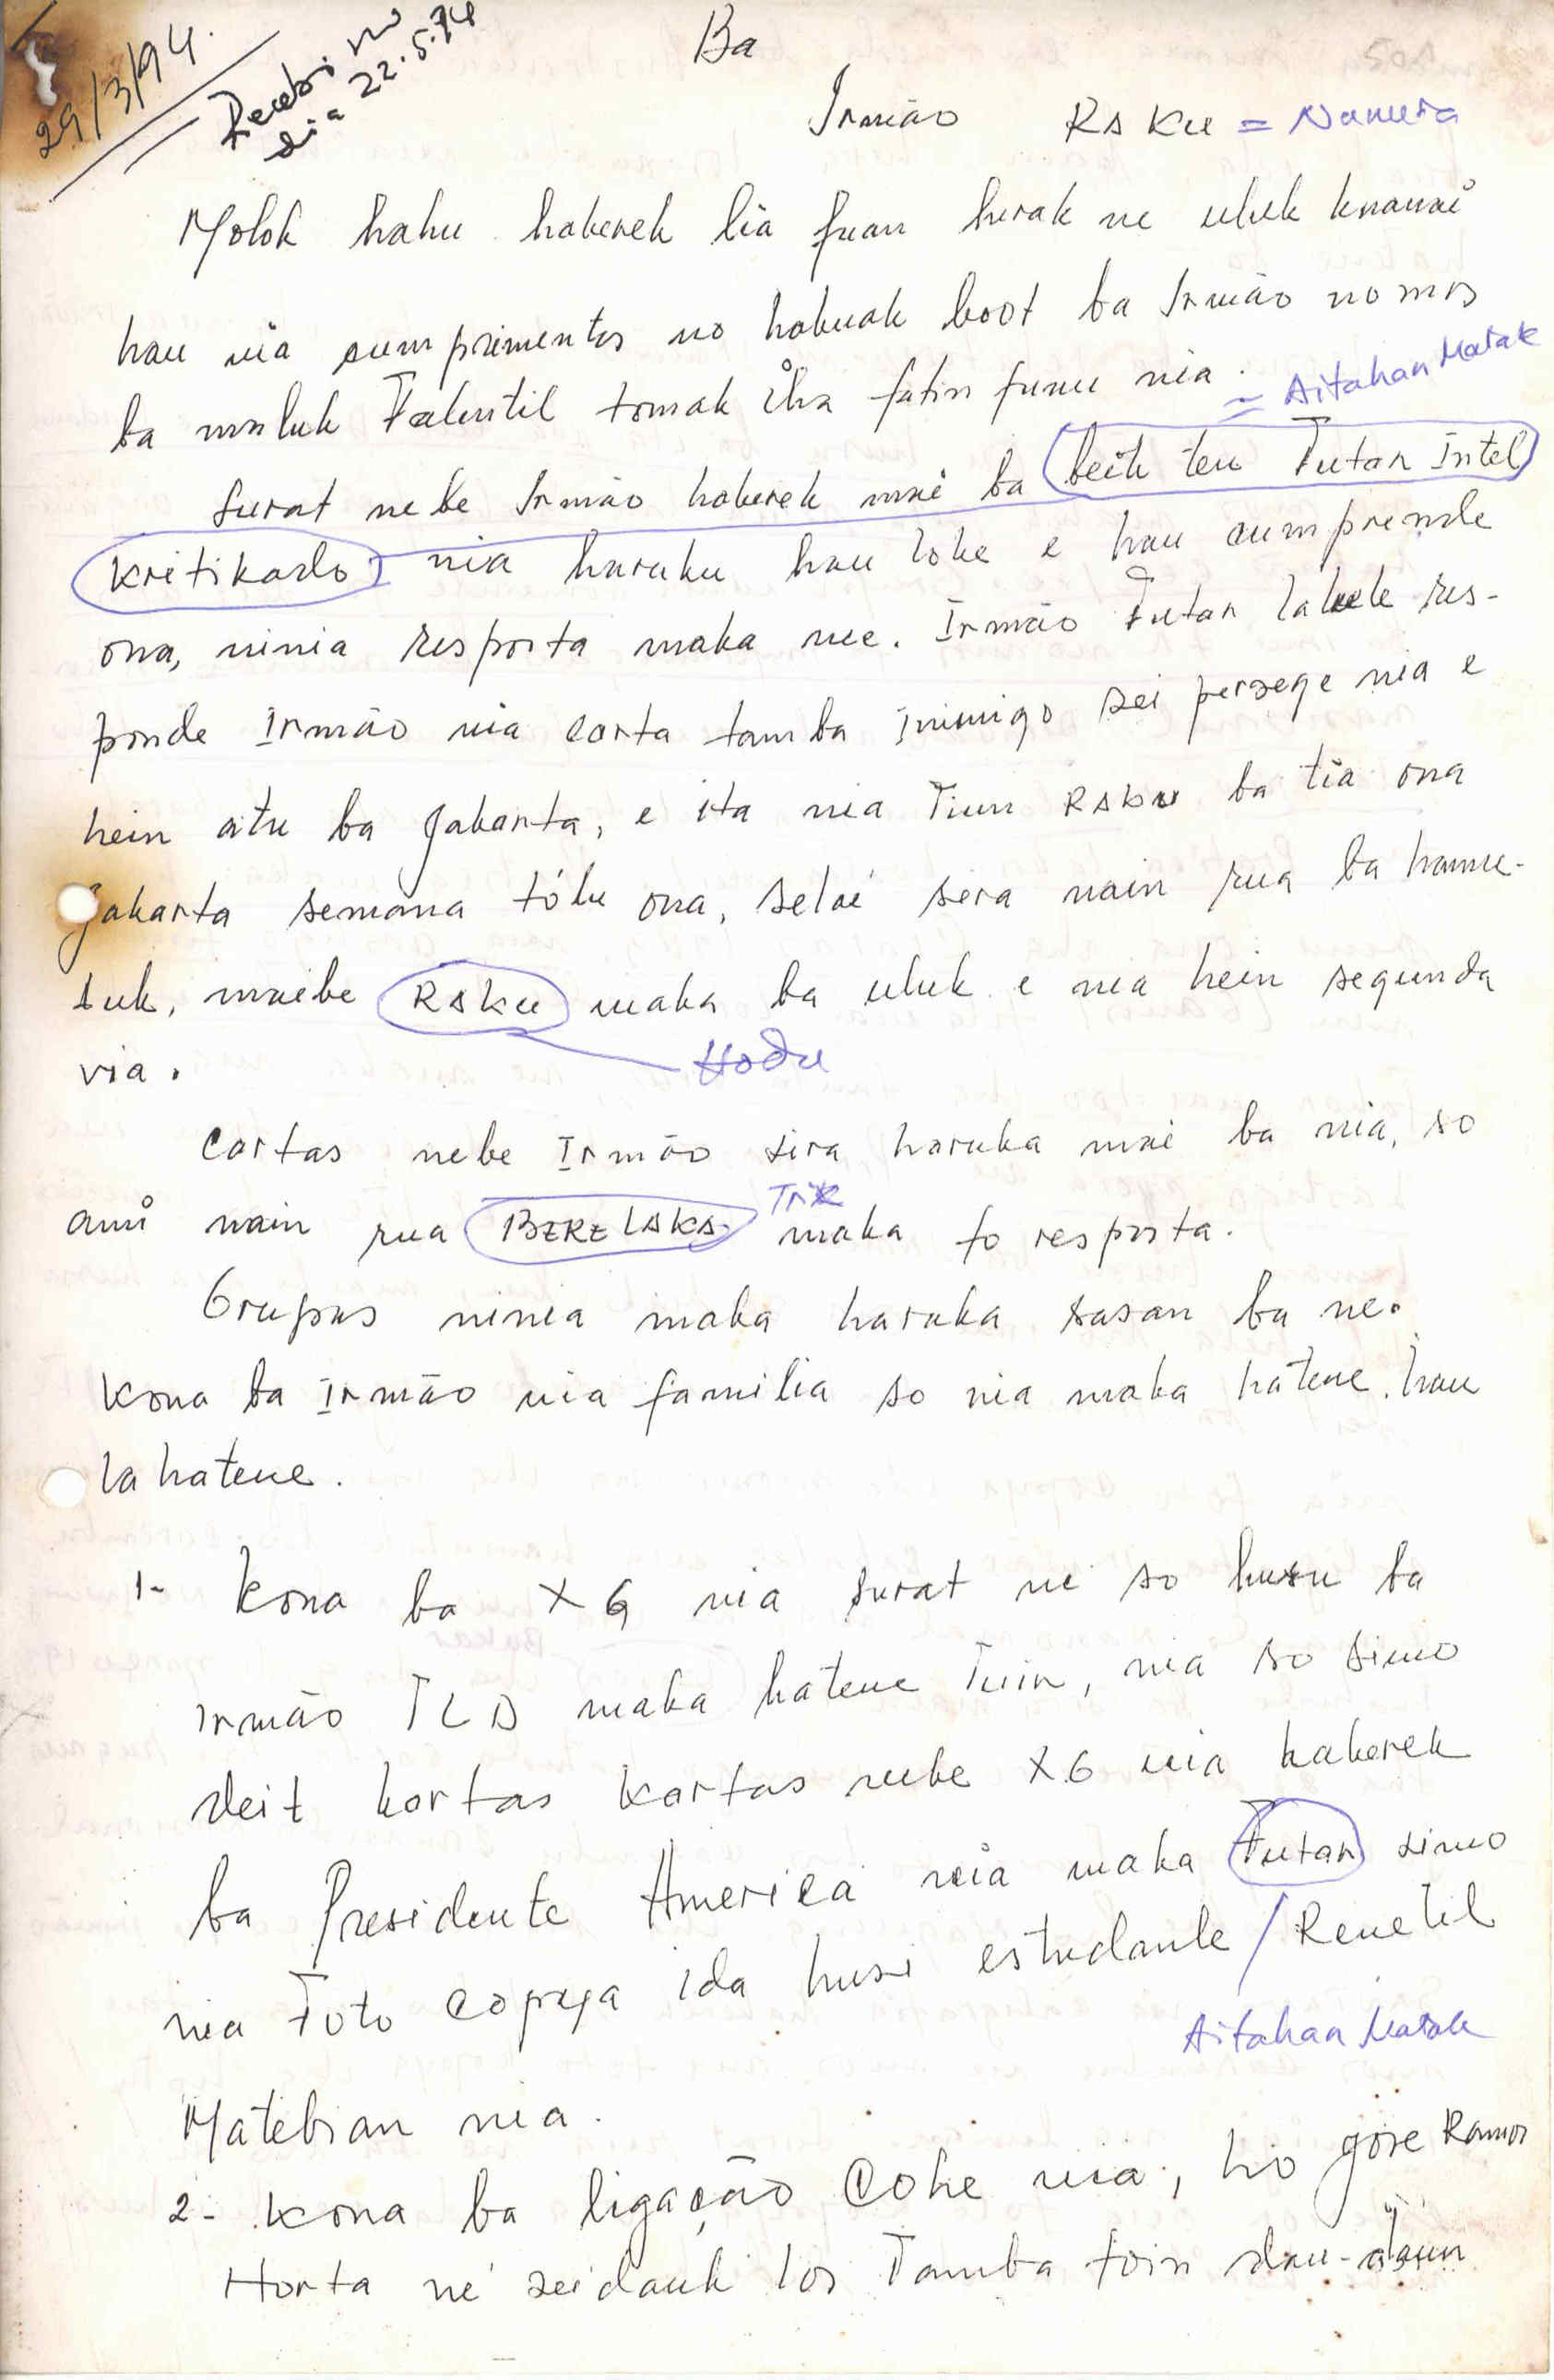 29/3/94.
Recebi no
dia 22.5.94
Ba
Irmão RAKu = Nanura
Molok hahu hakerek lia fuan hirak ne uluk knanai
hau nia cumprimentos no hakuak boot ba Irmão no mos
ba maluk Falintil tomak iha fatin funu nia.
= Aitahan Matak
Surat nebe Irmão hakerek mai ba beik teu Futar Intel
Kritikado nia haruka hau loke e hau cumprende
ona, ninia resposta maka nee. Irmão Futar labele res-
ponde Irmão nia carta tamba inimigo sei persege nia e
hein atu ba Jakarta, e ita nia Tiun RAKu ba tia ona
Jakarta semana tólu ona, selae sera nain rua ba hamu-
tuk, maibe RAKu maka ba uluk e nia hein segunda
via.
Hodu
Cartas nebe Irmão sira haruka mai ba nia, so
ami nain rua BERELAKA maka fo resposta.
TriX
Grupus ninia maka haruka sasan ba ne.
Kona ba Irmão nia familia so nia maka hatene. hau
la hatene.
1- Kona ba XG nia surat ne so husu ba
irmão TLD maka hatene Tuir, nia so simo
deit kartas kartas nebe XG nia hakerek
ba Presidente America nia maka Futar simo
nia Foto copya ida husi estudante / Renetil
Aitahan Matak
Matebian nia.
2- Kona ba ligação Cohe nia, ho Jose Ramos
Horta ne seidauk los Tamba foin dau-daun